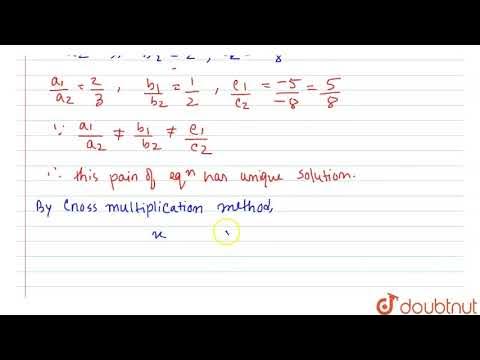 a₁/a₂ = 2/3 , b₁/b₂ = 1/2 , c₁/c₂ = -5/-8 = 5/8
∵ a₁/a₂ ≠ b₁/b₂ ≠ c₁/c₂
∴ this pain of eqⁿ has unique solution.
By Cross multiplication method,
x
doubtnut